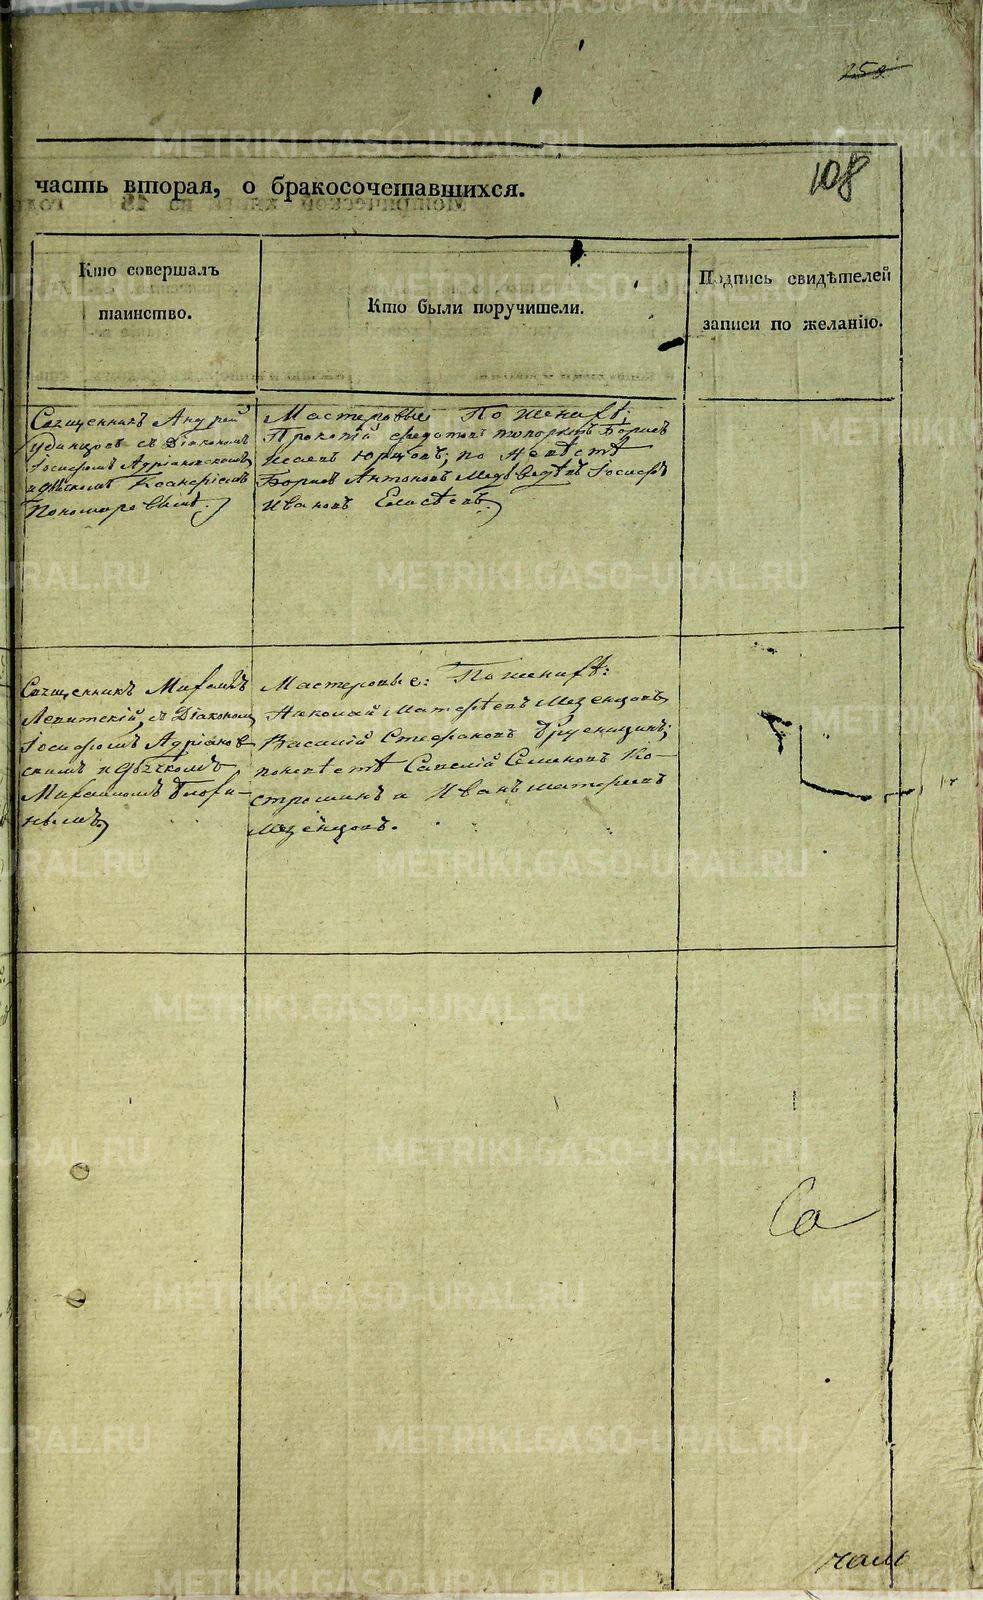 108
часть вторая, о бракосочетавшихся.
Кто совершалъ
таинство.
Кто были поручители.
Подпись свидѣтелей
записи по желанію.
Священникъ Андрей
Удинцовъ съ Діакономъ
Іосифомъ Адріановскимъ
и дьячкомъ
Пономаревымъ.
Мастеровые По женихѣ:
Прокопій Федотовъ Борисъ
Исаевъ Юрцовъ; по Невѣстѣ
Борисъ Антоновъ Медвѣдевъ Іосифъ
Ивановъ Елисѣевъ.
Священникъ Михаилъ
Левитскій, съ Діакономъ
Іосифомъ Адріанов-
скимъ и дьячкомъ
Михаиломъ
Мастеровые: По женихѣ:
Николай Матфѣевъ Мезенцовъ
Василій Стефановъ
по невѣстѣ Савелій Семеновъ Ко-
строминъ и Иванъ Матфеевъ
Мезенцовъ.
Са
METRIKI.GASO-URAL.RU